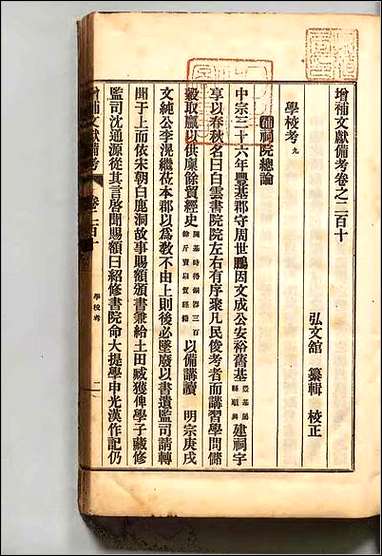 增補文獻備考卷之二百十
弘文館 纂輯 校正
學校考 九
補 祠院總論
中宗三十六年豐基郡守周世鵬因文成公安裕舊基 豐基通稱順興 建祠宇
享以春秋名曰白雲書院院左右有序聚凡民俊秀者而講習學問儲
穀取贏以供廩餘貿經史 開基時得銅器三百餘斤貿書冊 以備講讀 明宗庚戌
文純公李滉繼莅本郡以爲敎不由上則後必墜廢以書遺監司請轉
聞于上而依宋朝白鹿洞故事賜額頒書兼給土田臧獲俾學子藏修
監司沈通源從其言啓聞賜額曰紹修書院命大提學申光漢作記仍
增補文獻備考 卷二百十 學校考 一